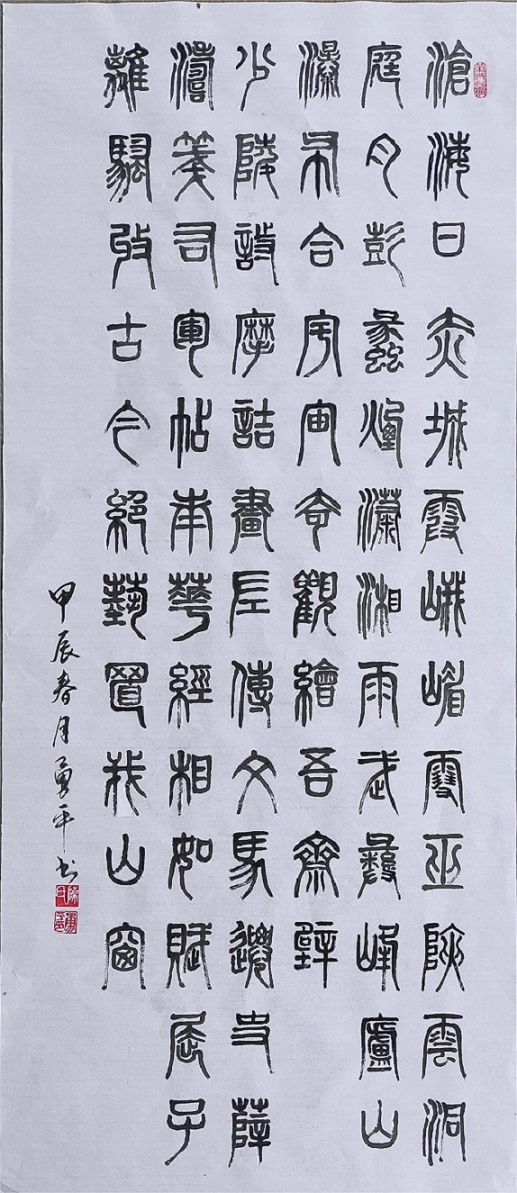 滄海日赤城霞峨嵋雪巫陜雲洞
庭月彭蠡煙瀟湘雨武彝峰廬山
瀑布合宇宙奇觀繪吾齋壁
少陵詩摩詰畫左傳文馬遷史薛
濤箋右軍帖南華經相如賦屈子
離騷收古今絕藝置我山窗
甲辰春月勇平书